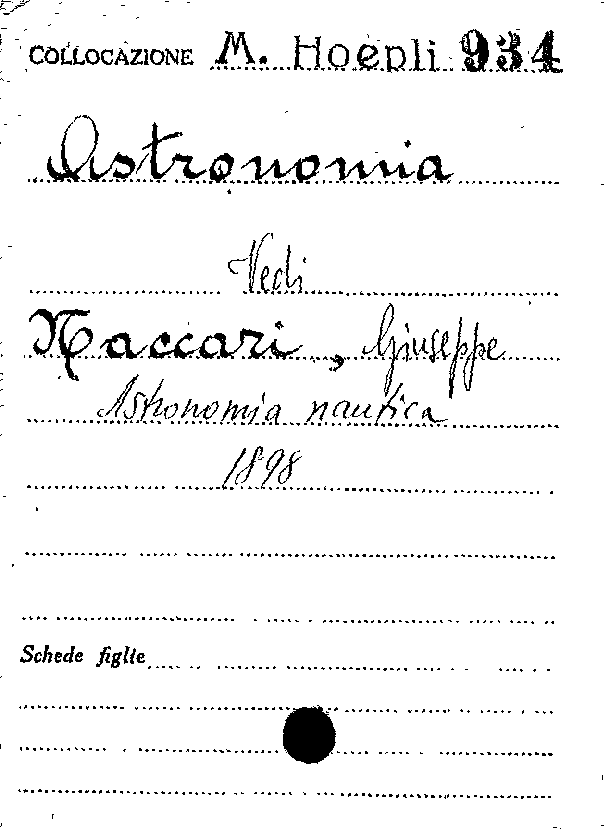 COLLOCAZIONE M. Hoepli 934
Astronomia
Vedi
Naccari, Giuseppe
Astronomia nautica
1898
Schede figlie